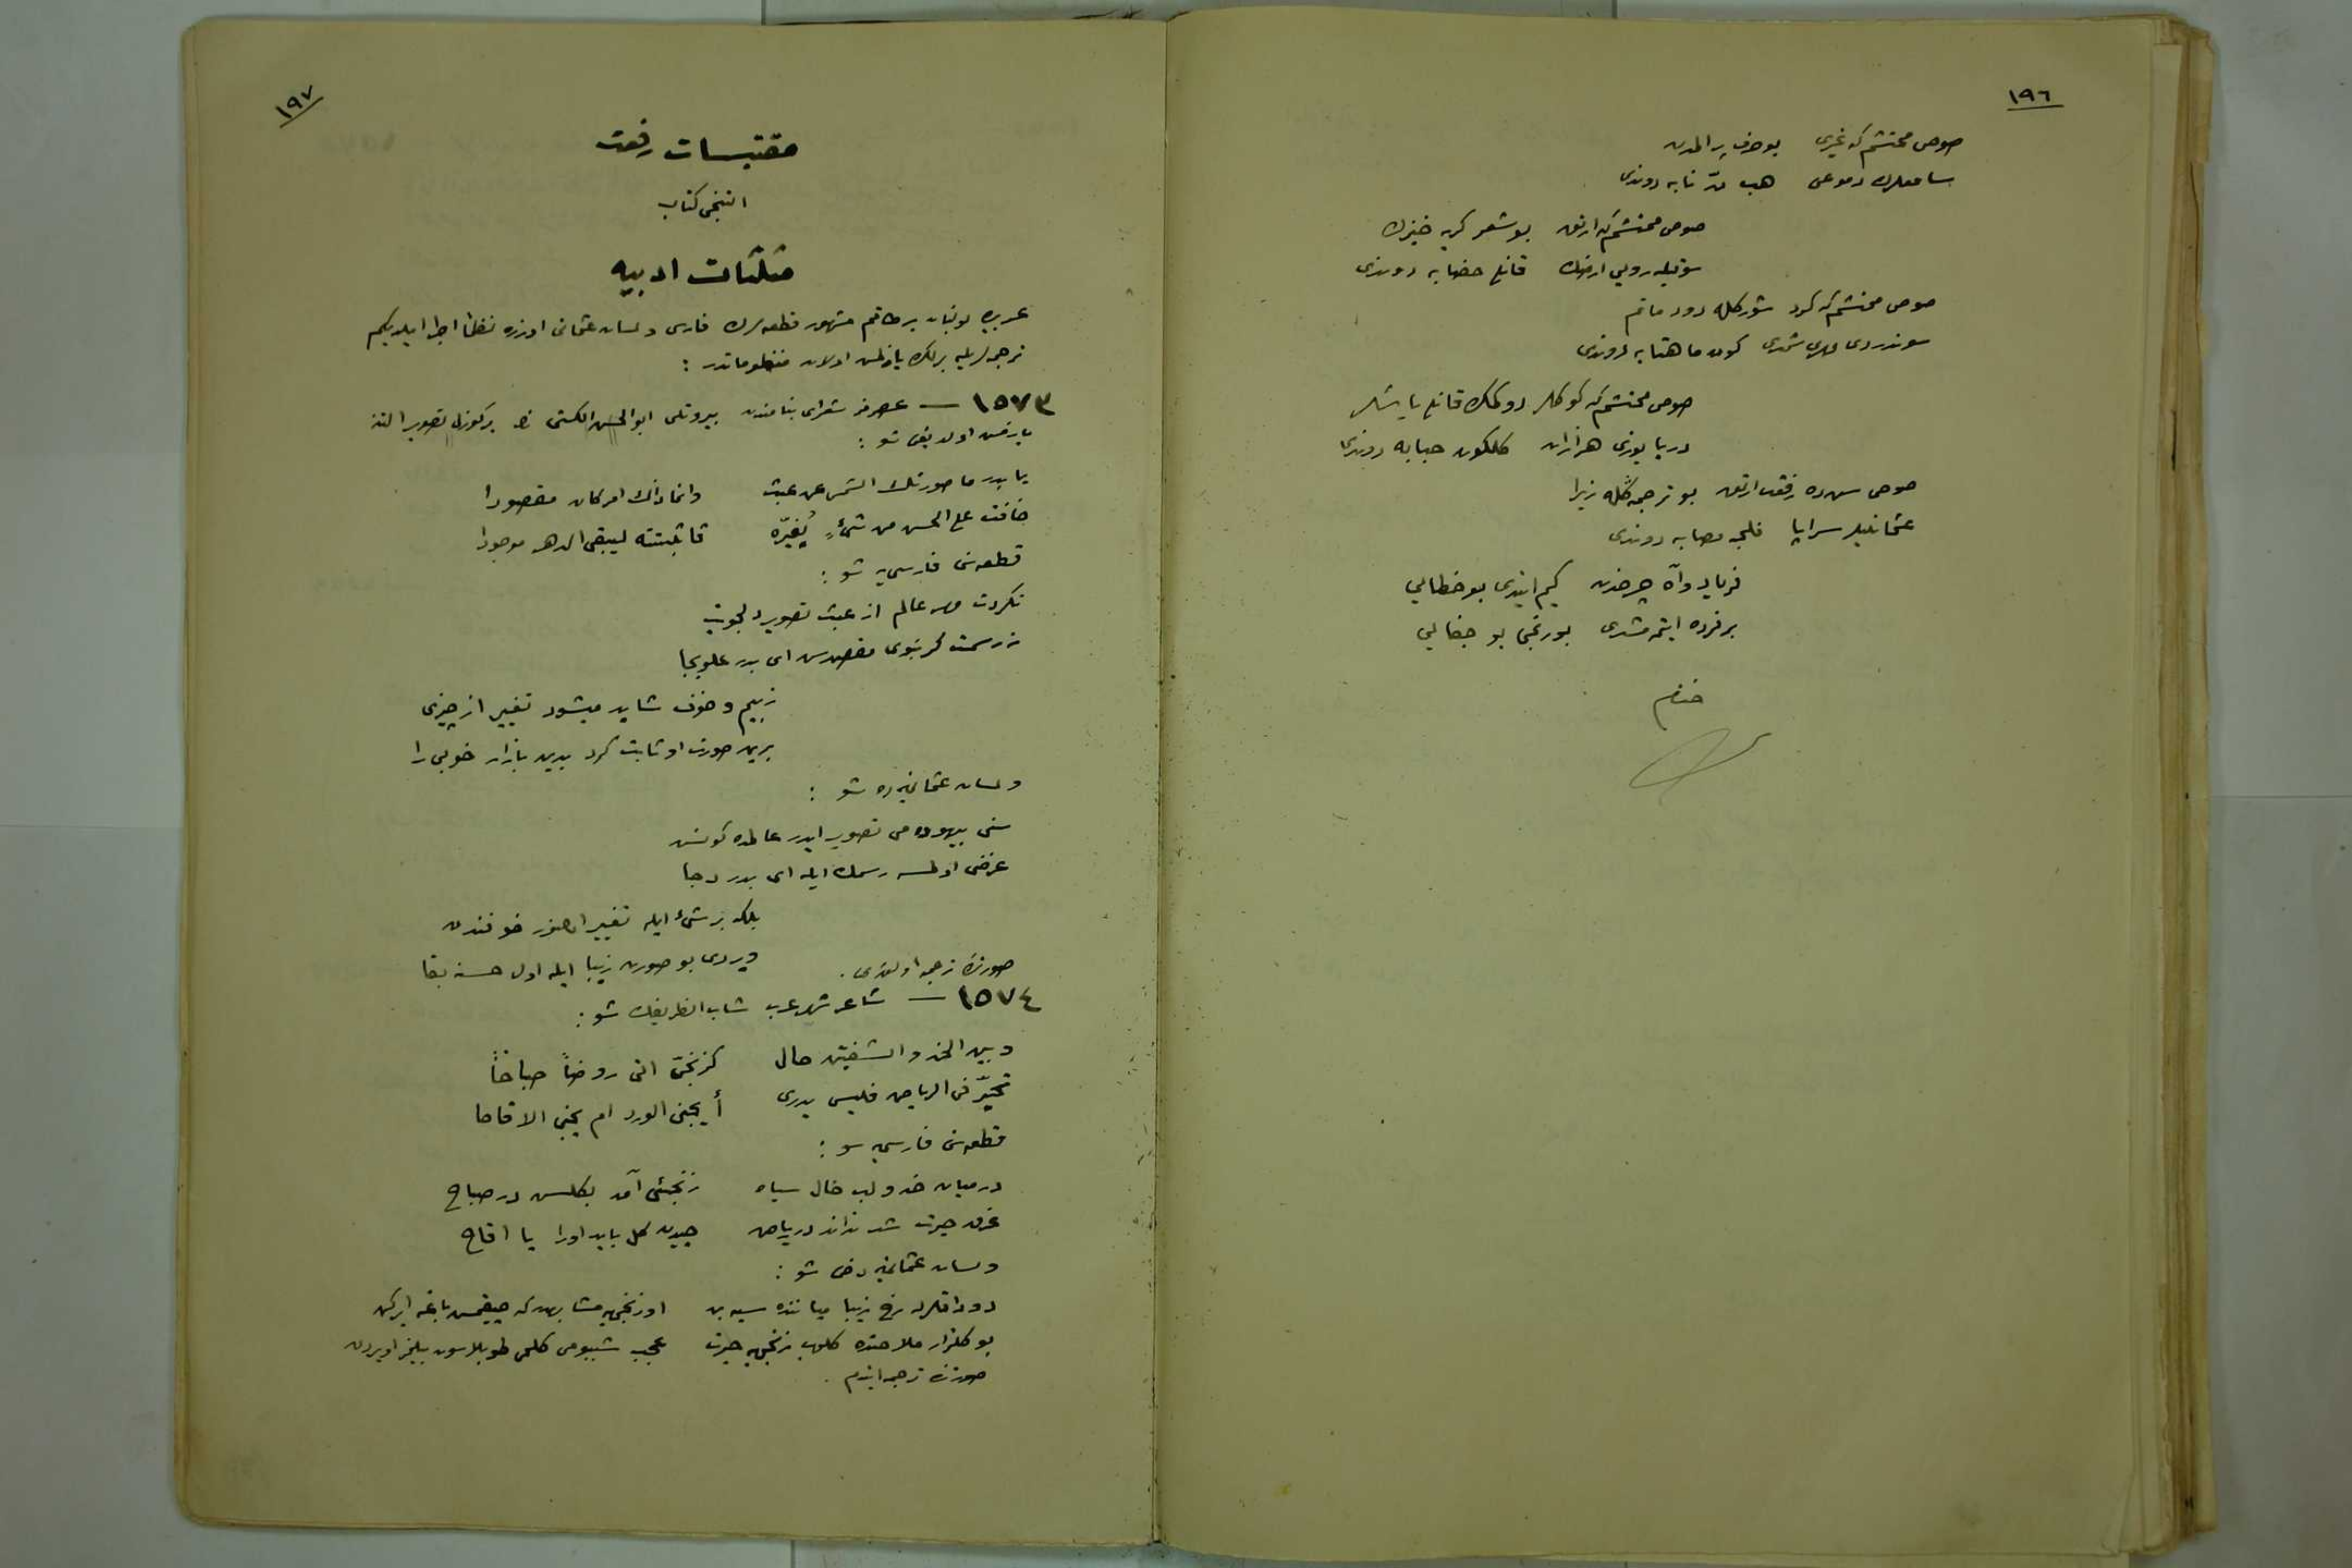 ١٩٦
صوص محتشم كه غیری بو حرف پر المدن
سامعلرك دموعی هب درّ نابه دوندی
صوص محتشم كه ارتق بو شعر كریه خیزك
سویله روی ارضك قانله خضابه دوندی
صوص محتشم كه كرد شور كله دود ماتم
سوندردی مهری شمدی كون ماهتابه دوندی
صوص محتشم كه كوكلر دوكمك قانلی یاشلر
دریا یوزی هزاران كلكون حبابه دوندی
صوص سن ده رفعت ارتق بو ترجمه كله زیرا
عثمانلیلر سراپا قلب مصابه دوندی
فریاد و آه چرخدن كیم ایتدی بو خطایی
بر فرده ایتمه مشدی بو رنجی بو جفایی
ختم
١٩٧
مقتبسات رفعت
التنجی كتاب
مثلثات ادبیه
عربی بولنان بر طاقم مشهور قطعه لرك فارسی و لسان عثمانی اوزره نظماً اجرا ایلدیكم
ترجمه لریله برلكده یازلمش اولان منظوماتدر :
١٥٧٣ — عصرمز شعرای بنامندن بیروتلی ابو الحسن الكستی نك بر كوزل تصویر التنه
یازمش اولدیغی شو :
یا بدر ما صورتك الشمس عن عبث وانما ذاك امر كان مقصودا
خافت علی الحسن من شیءٍ یُغیّره فاثبتته لیبقی الدهر موجودا
قطعه سی فارسیه شو :
نكردت مهر عالم از عبث تصویر دلجویت
ز رسمت كر نبودی مقصدش ای بدر علویجا
ز بیم و خوف شاید میشود تغییر از چیزی
برین صورت او ثابت كرد بدین بازار خوبی را
و لسان عثمانیده شو :
سنی بیهوده می تصویر ایدر عالمده كونش
غرضی اولمسه رسمك ایله ای بدر دجا
بلكه بر شیء ایله تغییر اولنور خوفندن
ویردی بو صورت زیبا ایله اول حسنه بقا
صورتده ترجمه اولندی .
١٥٧٤ — شاعر شهیر عرب شاب الظریفك شو :
وبین الخد والشفتین خال كزنجیّ اتی روضاً صباحاً
تحیّر فی الریاض فلیس یدری أیجنی الورد ام یجنی الاقاحا
قطعه سی فارسیه شو :
در میان خد و لب خال سیاه زنجئی آمد بكلشن در صباح
غرق حیرت شد نداند در ریاض چیدن كل باید اورا یا اقاح
و لسان عثمانیه دخی شو :
دوداقلرله رخ زیبا میاننده سیه بن او زنجی یه مشابهدر كه چیقمش باغه ایركن
بو كلزار ملاحتده كلوب زنجی یه حیرت عجب شببومی كلمی طوپلاسون بیلمز اویردن
صورتده ترجمه ایتدم .